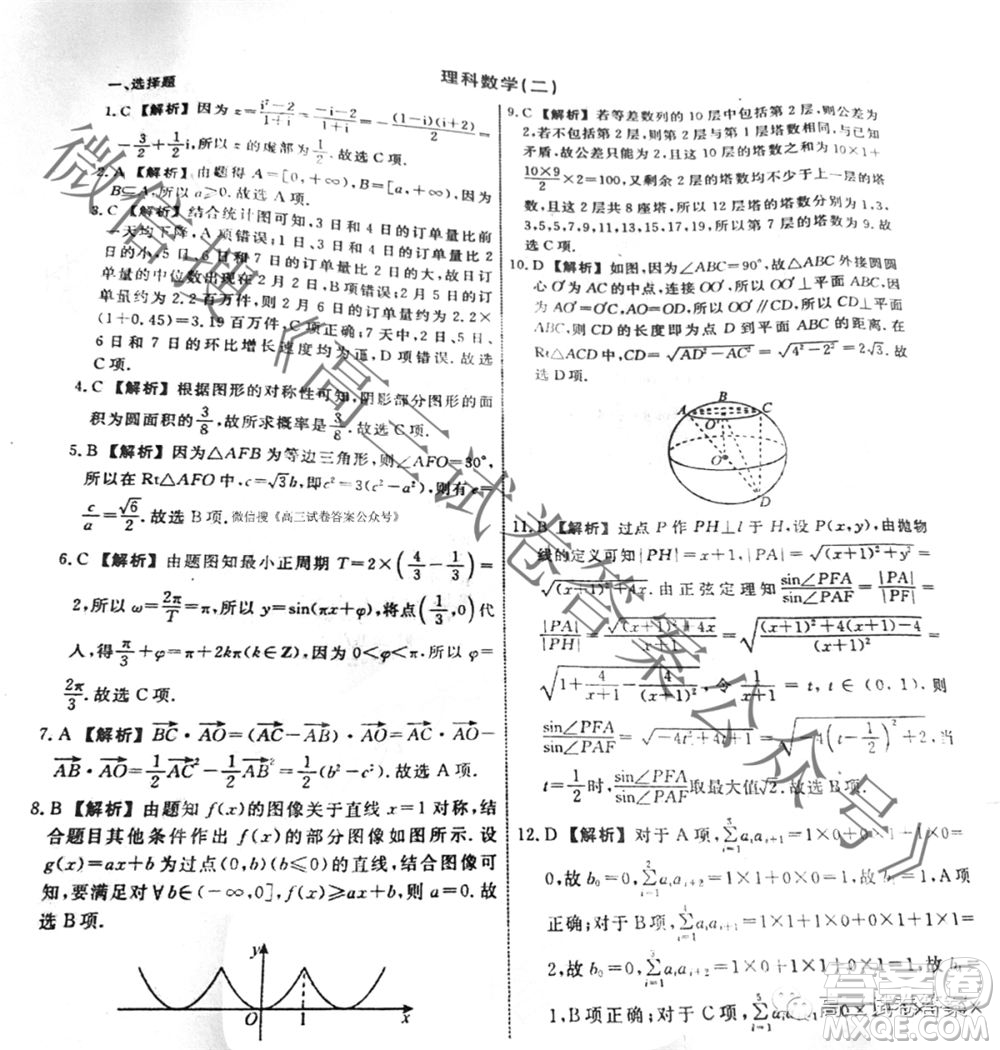 理科数学(二)
一、选择题
1.C 【解析】因为 z=\frac{i^7-2}{1+i}=\frac{-i-2}{1+i}=-\frac{(1-i)(i+2)}{2}=
-\frac{3}{2}+\frac{1}{2}i,所以 z 的虚部为\frac{1}{2}.故选 C 项.
2.A 【解析】由题得 A=[0,+∞),B=[a,+∞),因为
B⊆A,所以 a≥0.故选 A 项.
3.C 【解析】结合统计图可知,3 日和 4 日的订单量比前
一天均下降,A 项错误;1 日和 3 日的订单量比 4 日和 6
日的小,5 日和 7 日的订单量比 2 日的大,故日订
单量的中位数出现在 2 月 2 日,B 项错误;2 月 2 日的订
单量约为 2.2 百万件,2 月 6 日的订单量约为 2.2×
(1+0.45)=3.19 百万件,C 项正确;7 天中,2 日、5 日、
6 日和 7 日的环比增长速度均为正,D 项错误.故选
C 项.
4.C 【解析】根据图形的对称性可知,阴影部分图形的面
积为圆面积的\frac{3}{8},故所求概率是\frac{3}{8}.故选 C 项.
5.B 【解析】因为△AFB为等边三角形,则∠AFO=30°,
所以在 Rt△AFO 中,c=√3b,即c²=3(c²-a²),则有 e=
\frac{c}{a}=\frac{√6}{2}.故选 B 项.微信搜《高三试卷答案公众号》
6.C 【解析】由题图知最小正周期 T=2×(\frac{4}{3}-\frac{1}{3})=
2,所以 ω=\frac{2π}{T}=π,所以 y=sin(πx+φ),将点(\frac{1}{3},0)代
入,得\frac{π}{3}+φ=π+2kπ(k∈Z),因为 0<φ<π,所以 φ=
\frac{2π}{3}.故选 C 项.
7.A 【解析】\overrightarrow{BC}·\overrightarrow{AO}=(\overrightarrow{AC}-\overrightarrow{AB})·\overrightarrow{AO}=\overrightarrow{AC}·\overrightarrow{AO}-
\overrightarrow{AB}·\overrightarrow{AO}=\frac{1}{2}\overrightarrow{AC}²-\frac{1}{2}\overrightarrow{AB}²=\frac{1}{2}(b²-c²).故选 A 项.
8.B 【解析】由题知 f(x)的图像关于直线 x=1 对称,结
合题目其他条件作出 f(x)的部分图像如图所示.设
g(x)=ax+b 为过点(0,b)(b≤0)的直线,结合图像可
知,要满足对∀b∈(-∞,0],f(x)≥ax+b,则 a=0.故
选 B 项.
y
O 1 x
9.C 【解析】若等差数列的 10 层中包括第 2 层,则公差为
2,若不包括第 2 层,则第 1 层与第 2 层的塔数相同,与已知
矛盾,故公差只能为 2,且这 10 层的塔数之和为 10×1+
\frac{10×9}{2}×2=100,又剩余 2 层的塔数均不少于上一层的塔
数,且这 2 层共 8 座塔,所以塔的塔数分别为 1,3,
3,5,5,7,9,11,13,15,17,19,所以第 7 层的塔数为 9.故
选 C 项.
10.D 【解析】如图,因为∠ABC=90°,故△ABC 外接圆圆
心 O′为 AC 的中点,连接 OO′,所以 OO′⊥平面 ABC.
因为 AO′=O′C,AO=OD,所以 OO′∥CD,所以 CD⊥平
面 ABC,则 CD 的长度即为点 D 到平面 ABC 的距离.在
Rt△ACD 中,CD=√(AD²-AC²)=√(4²-2²)=2√3.故
选 D 项.
A B C
O′
O
D
11.B 【解析】过点 P 作 PH⊥l 于 H,设 P(x,y),由抛物
线的定义可知|PH|=x+1,|PA|=√((x+1)²+y²)=
√((x+1)²+4x).由正弦定理知\frac{sin∠PFA}{sin∠PAF}=\frac{|PA|}{|PF|}=
\frac{|PA|}{|PH|}=\frac{√((x+1)²+4x)}{x+1}=√(\frac{(x+1)²+4(x+1)-4}{(x+1)²})=
√(1+\frac{4}{x+1}-\frac{4}{(x+1)²}).令\frac{1}{x+1}=t,t∈(0,1).则
\frac{sin∠PFA}{sin∠PAF}=√(-4t²+4t+1)=√(-4(t-\frac{1}{2})²+2),当
t=\frac{1}{2}时,\frac{sin∠PFA}{sin∠PAF}取最大值√2.故选 B 项.
12.D 【解析】对于 A 项,\sum_{i=1}^{3}a_ia_{i+1}=1×0+0×
0,故 b_0=0,故\sum_{i=1}^{3}a_ia_{i+2}=1×0+0×1+1×1,A 项
正确;对于 B 项,\sum_{i=1}^{5}a_ia_{i+1}=1×1+1×0+0×1+1×1=
2,故 b_0=0,\sum_{i=1}^{5}a_ia_{i+2}=1×0+1×1+0×1+1×1=
1,B 项正确;对于 C 项,
微信搜《高三试卷答案公众号》
高三试卷答案
答案圈
MXQE.COM